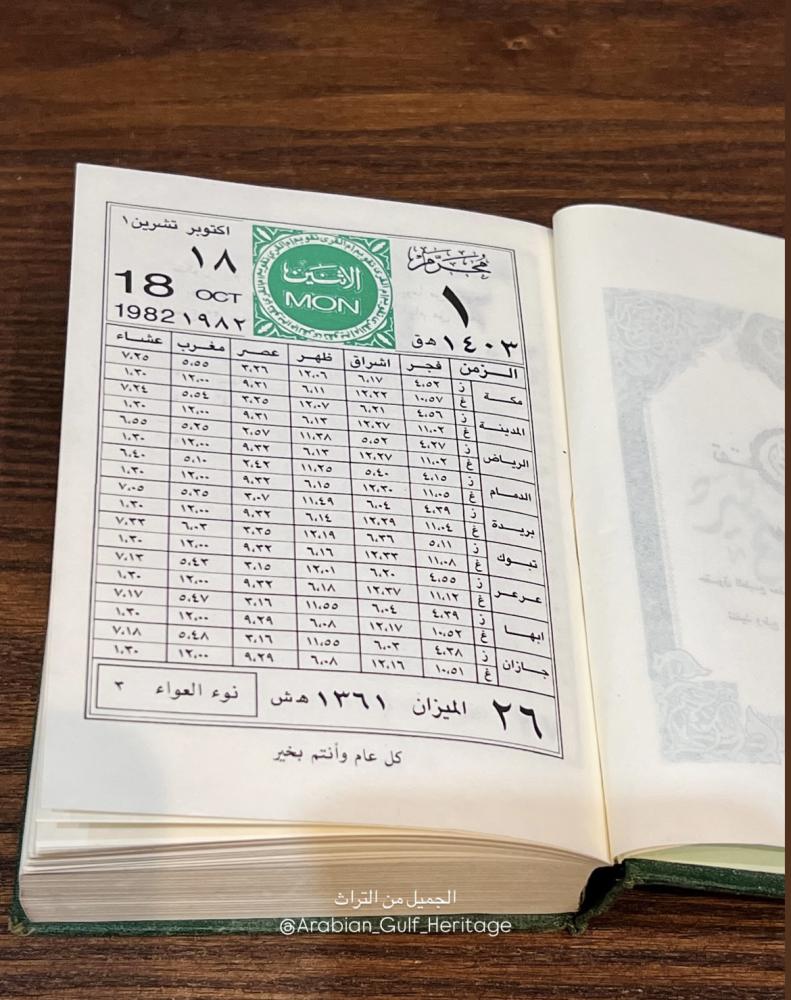 محرم
١
١٤٠٣ هـ ق
تقويم ام القرى
الاثنين
MON
اكتوبر تشرين ١
١٨
18 OCT
1982 ١٩٨٢
الزمن فجر اشراق ظهر عصر مغرب عشاء
مكة ز ٤،٥٢ ٦،١٧ ١٢،٠٦ ٣،٢٦ ٥،٥٥ ٧،٢٥
غ ١٠،٥٧ ١٢،٢٢ ٦،١١ ٩،٣١ ١٢،٠٠ ١،٣٠
المدينة ز ٤،٥٦ ٦،٢١ ١٢،٠٧ ٣،٢٥ ٥،٥٤ ٧،٢٤
غ ١١،٠٢ ١٢،٢٧ ٦،١٣ ٩،٣١ ١٢،٠٠ ١،٣٠
الرياض ز ٤،٢٧ ٥،٥٢ ١١،٣٨ ٢،٥٧ ٥،٢٥ ٦،٥٥
غ ١١،٠٢ ١٢،٢٧ ٦،١٣ ٩،٣٢ ١٢،٠٠ ١،٣٠
الدمام ز ٤،١٥ ٥،٤٠ ١١،٢٥ ٢،٤٢ ٥،١٠ ٦،٤٠
غ ١١،٠٥ ١٢،٣٠ ٦،١٥ ٩،٣٢ ١٢،٠٠ ١،٣٠
بريدة ز ٤،٣٩ ٦،٠٤ ١١،٤٩ ٣،٠٧ ٥،٣٥ ٧،٠٥
غ ١١،٠٤ ١٢،٢٩ ٦،١٤ ٩،٣٢ ١٢،٠٠ ١،٣٠
تبوك ز ٥،١١ ٦،٣٦ ١٢،١٩ ٣،٣٥ ٦،٠٣ ٧،٣٣
غ ١١،٠٨ ١٢،٣٣ ٦،١٦ ٩،٣٢ ١٢،٠٠ ١،٣٠
عرعر ز ٤،٥٥ ٦،٢٠ ١٢،٠١ ٣،١٥ ٥،٤٣ ٧،١٣
غ ١١،١٢ ١٢،٣٧ ٦،١٨ ٩،٣٢ ١٢،٠٠ ١،٣٠
ابها ز ٤،٣٩ ٦،٠٤ ١١،٥٥ ٣،١٦ ٥،٤٧ ٧،١٧
غ ١٠،٥٢ ١٢،١٧ ٦،٠٨ ٩،٢٩ ١٢،٠٠ ١،٣٠
جازان ز ٤،٣٨ ٦،٠٣ ١١،٥٥ ٣،١٦ ٥،٤٨ ٧،١٨
غ ١٠،٥١ ١٢،١٦ ٦،٠٨ ٩،٢٩ ١٢،٠٠ ١،٣٠
٢٦ الميزان ١٣٦١ هـ ش نوء العواء ٣
كل عام وأنتم بخير
الجميل من التراث
@Arabian_Gulf_Heritage